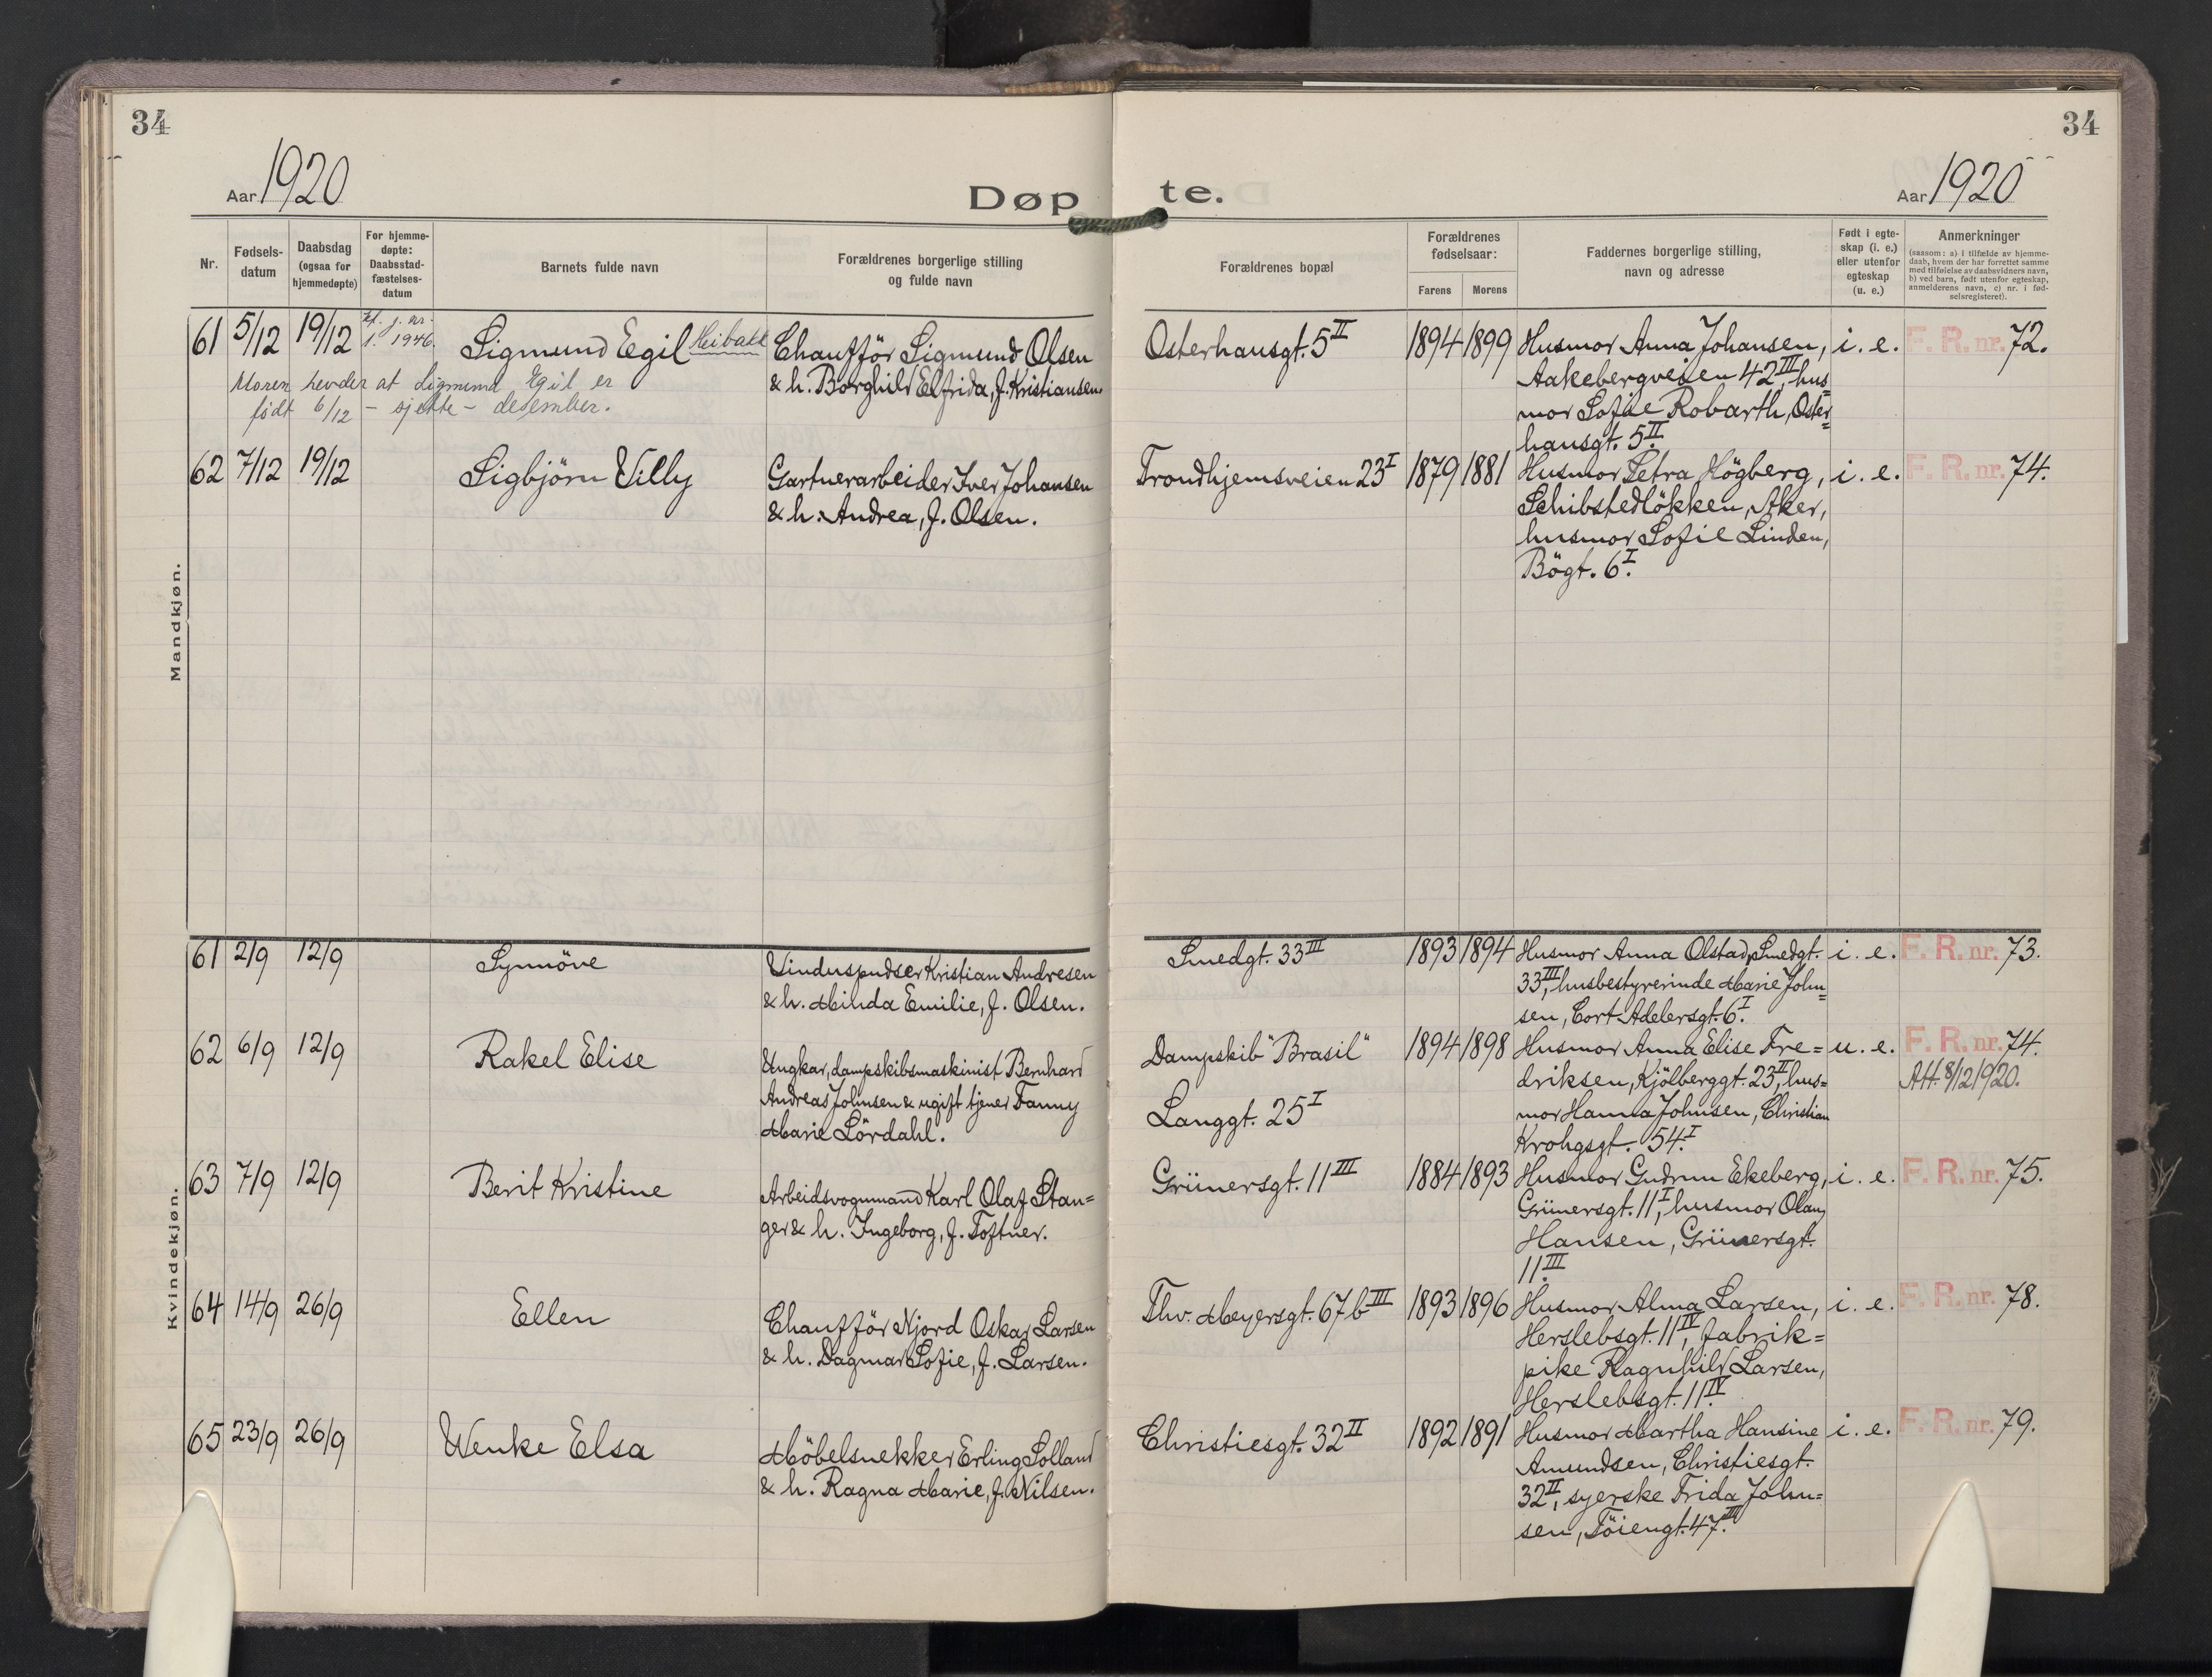 34
34
Aar 1920
Døpte.
Aar 1920
Nr.
Fødsels-
datum
Daabsdag
(ogsaa for
hjemmedøpte)
For hjemme-
døpte:
Daabsstad-
fæstelses-
datum
Barnets fulde navn
Forældrenes borgerlige stilling
og fulde navn
Forældrenes bopæl
Forældrenes
fødselsaar:
Farens
Morens
Faddernes borgerlige stilling,
navn og adresse
Født i egte-
skap (i. e.)
eller utenfor
egteskap
(u. e.)
Anmerkninger
(saasom: a) i tilfælde av hjemme-
daab, hvem der har forrettet samme
med tilføielse av daabsvidners navn,
b) ved barn, født utenfor egteskap,
anmelderens navn, c) nr. i fød-
selsregisteret).
Mandkjøn.
61 5/12 19/12
1. 1946.
Sigmund Egil
Moren hevder at Sigmund Egil er
født 6/12 - sjette - desember.
Chaufför Sigmund Olsen
& h. Borghild Elfrida, f. Kristiansen.
Osterhausgt. 5 II
1894 1899
Husmor Anna Johansen,
Aakebergveien 42 III, hus=
mor Sofie Robarth, Oster=
hausgt. 5 II.
i. e.
F. R. nr. 72.
62 7/12 19/12
Sigbjörn Villy
Gartnerarbeider Iver Johansen
& h. Andrea, f. Olsen.
Trondhjemsveien 23 I
1879 1881
Husmor Petra Högberg,
Schibstedlökken, Aker,
husmor Sofie Linden,
Bögt. 6 I.
i. e.
F. R. nr. 74.
Kvindekjøn.
61 2/9 12/9
Synnöve
Vinduspudser Kristian Andresen
& h. Milda Emilie, f. Olsen.
Smedgt. 33 III
1893 1894
Husmor Anna Olstad, Smedgt.
33 III, husbestyrerinde Marie John=
sen, Cort Adelersgt. 6 I.
i. e.
F. R. nr. 73.
62 6/9 12/9
Rakel Elise
Ungkar, dampskibsmaskinist Bernhard
Andreas Johnsen & ugift tjener Fanny
Marie Lördahl.
Dampskib "Brasil"
Langgt. 25 I
1894 1898
Husmor Anna Elise Fre=
driksen, Kjölberggt. 23 II, hus=
mor Hanna Johnsen, Christian
Krohgsgt. 54 I
u. e.
F. R. nr. 74.
Att. 8/12 1920.
63 7/9 12/9
Berit Kristine
Arbeidsvognmand Karl Olaf Stan=
ger & h. Ingeborg, f. Toftner.
Grünersgt. 11 III
1884 1893
Husmor Gudrun Ekeberg,
Grünersgt. 11 I, husmor Olaug
Hansen, Grünersgt.
11 III.
i. e.
F. R. nr. 75.
64 14/9 26/9
Ellen
Chaufför Njord Oskar Larsen
& h. Dagmar Sofie, f. Larsen.
Thv. Meyersgt. 67 b III
1893 1896
Husmor Alma Larsen,
Herslebsgt. 11 IV, fabrik=
pike Ragnhild Larsen,
Herslebsgt. 11 IV.
i. e.
F. R. nr. 78.
65 23/9 26/9
Wenke Elsa
Möbelsnekker Erling Solland
& h. Ragna Marie, f. Nilsen.
Christiesgt. 32 II
1892 1891
Husmor Martha Hansine
Amundsen, Christiesgt.
32 II, syerske Frida John=
sen, Töiengt. 47 III.
i. e.
F. R. nr. 79.